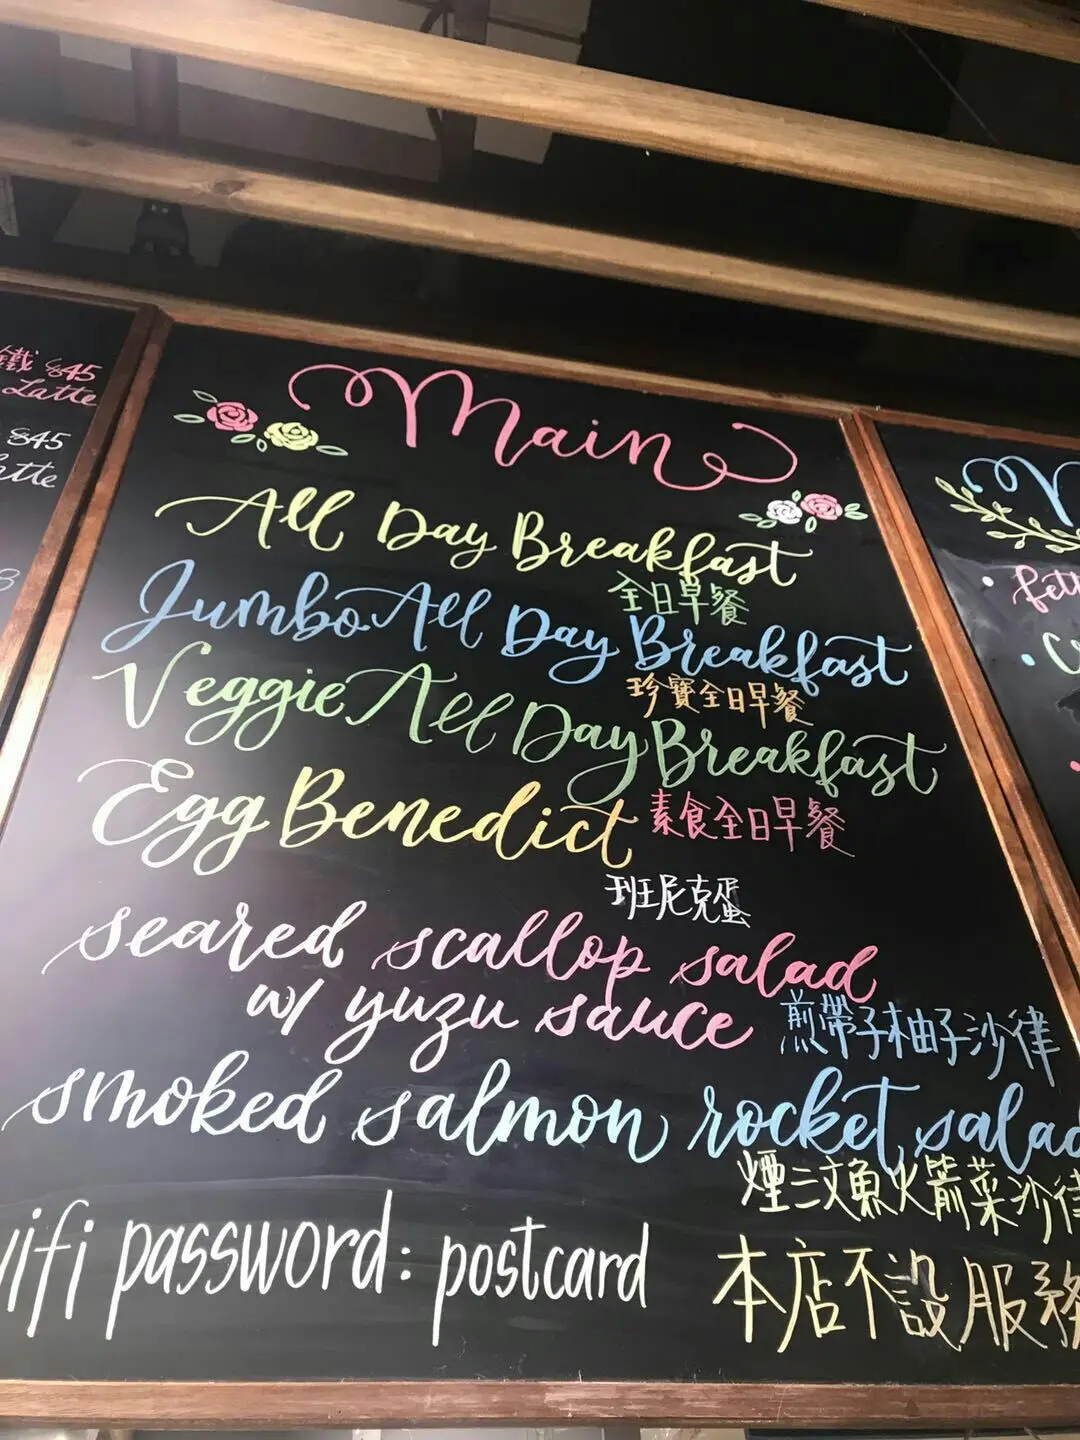 鐵 $45
Latte
$45
Main
All Day Breakfast
全日早餐
Jumbo All Day Breakfast
珍寶全日早餐
Veggie All Day Breakfast
素食全日早餐
Egg Benedict
班尼克蛋
seared scallop salad
w/ yuzu sauce
煎帶子柚子沙律
smoked salmon rocket salad
煙三文魚火箭菜沙律
wifi password: postcard
本店不設服務